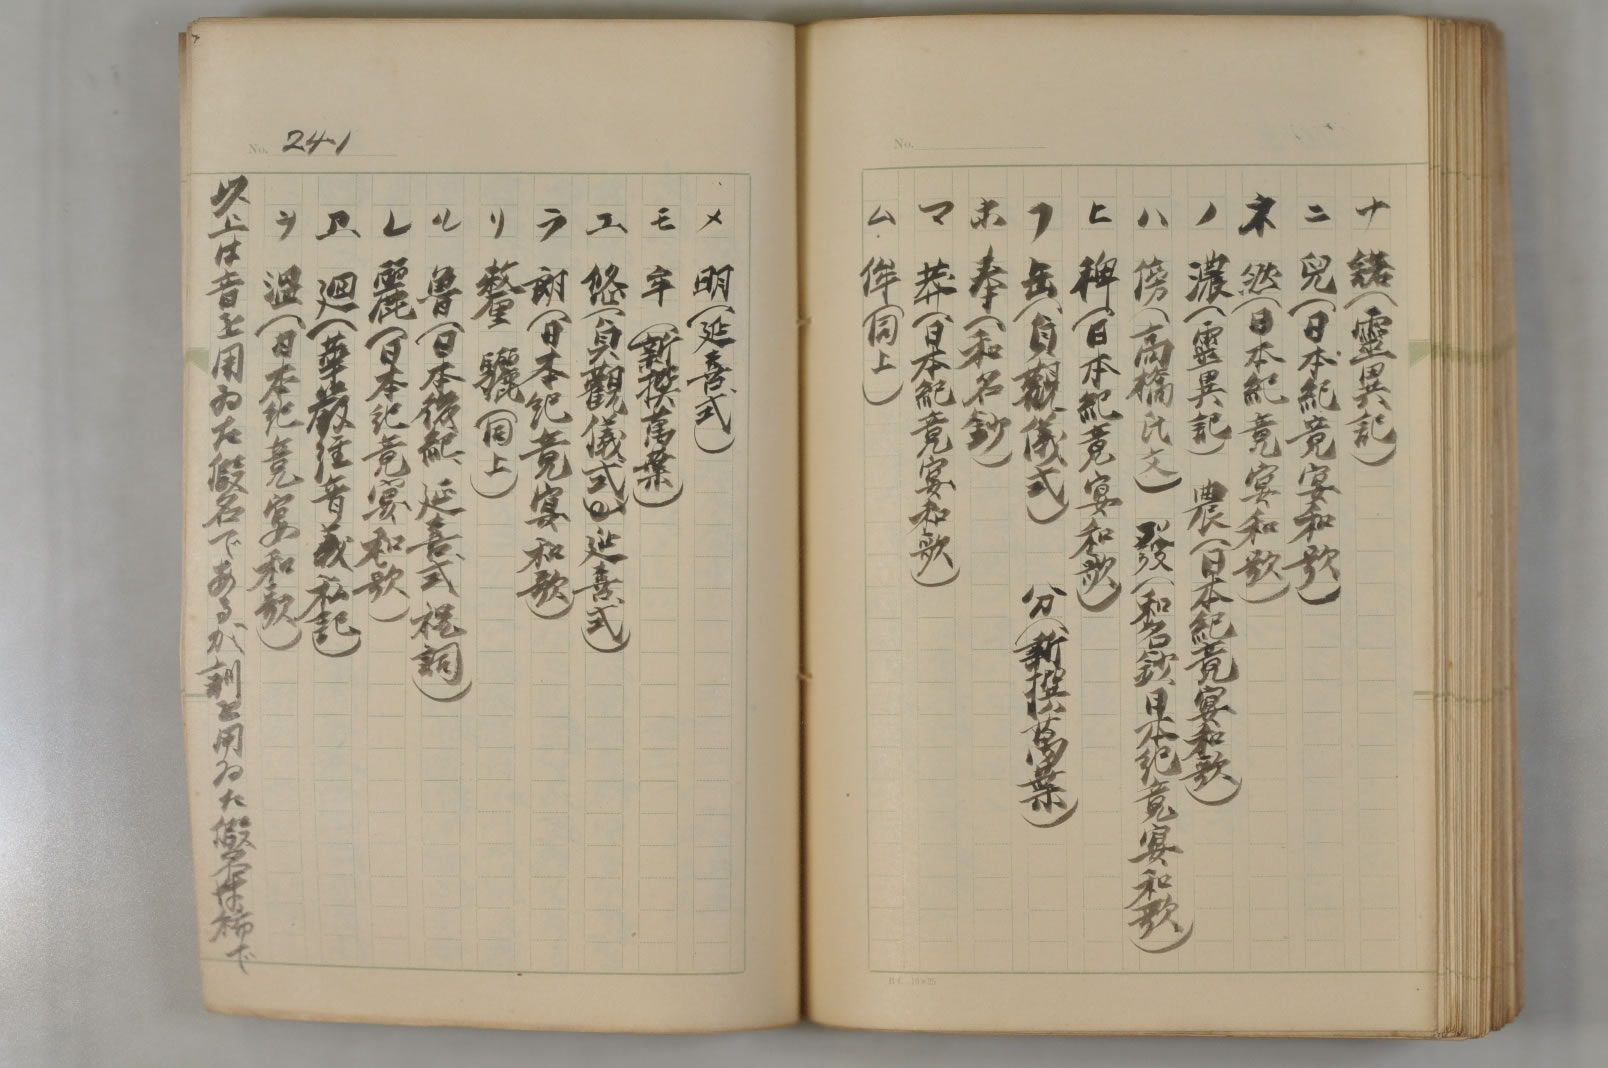 ナ 諾(靈異記)
ニ 兒(日本紀竟宴和歌)
ネ 然(日本紀竟宴和歌)
ノ 濃(靈異記) 農(日本紀竟宴和歌)
ハ 傍(高橋氏文) 發(和名鈔、日本紀竟宴和歌)
ヒ 稗(日本紀竟宴和歌)
フ 缶(貞觀儀式) 分(新撰萬葉)
ホ 奉(和名鈔)
マ 莽(日本紀竟宴和歌)
ム 侔(同上)
No.
No. 24-1
メ 明(延喜式)
モ 牟(新撰萬葉)
エ 悠(貞觀儀式、延喜式)
ラ 朗(日本紀竟宴和歌)
リ 釐 驪(同上)
ル 魯(日本後紀、延喜式祝詞)
レ 麗(日本紀竟宴和歌)
ヱ 廻(華嚴經音義私記)
ヲ 溫(日本紀竟宴和歌)
以上は音を用ゐた假名であるが、訓を用ゐた假名は稀で